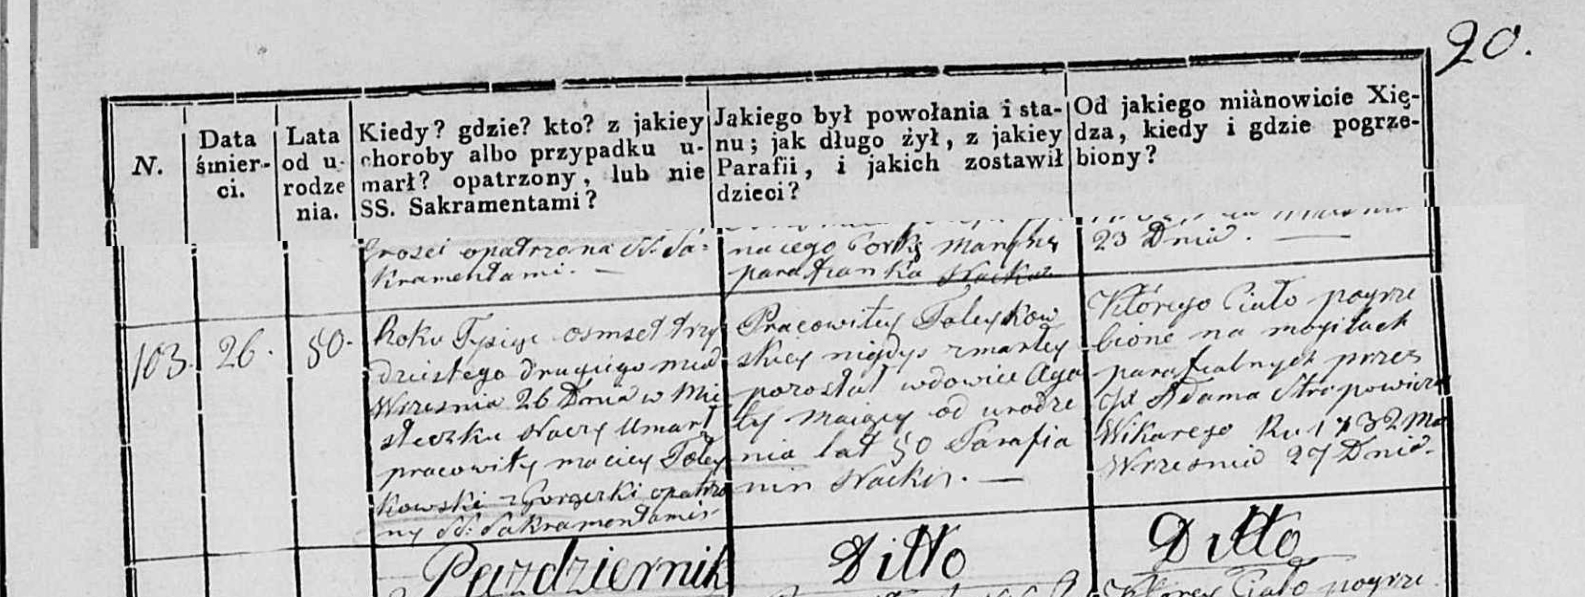 20.
N.
Data
śmier-
ci.
Lata
od u-
rodze
nia.
Kiedy? gdzie? kto? z jakiey
choroby albo przypadku u-
marł? opatrzony, lub nie
SS. Sakramentami?
Jakiego był powołania i sta-
nu; jak długo żył, z jakiey
Parafii, i jakich zostawił
dzieci?
Od jakiego miànowicie Xię-
dza, kiedy i gdzie pogrze-
biony?
opatrzona SS. Sa=
kramentami. —
parafianka
23 Dnia. —
103.
26.
50.
Roku Tysiąc osmset trzy
dziestego drugiego
Wrzesnia 26 Dnia w Mia
steczku Naczy Umarł
pracowity maciey Toley
kowski z Gorgerki opatrzo
ny SS. Sakramentami
Pracowitey Toleykow
skiey nigdys zmarłey
pozostał wdowiec Aga
ty maiący od urodze
nia lat 50 Parafia
nin Nackie. —
Którego Ciało pogrze
bione na mogiłach
parafialnych przez
Jx Adama
Wikarego Ru 1832
Wrzesnia 27 Dnia.
Pazdziernik
Ditto
Ditto
Ciało pogrze